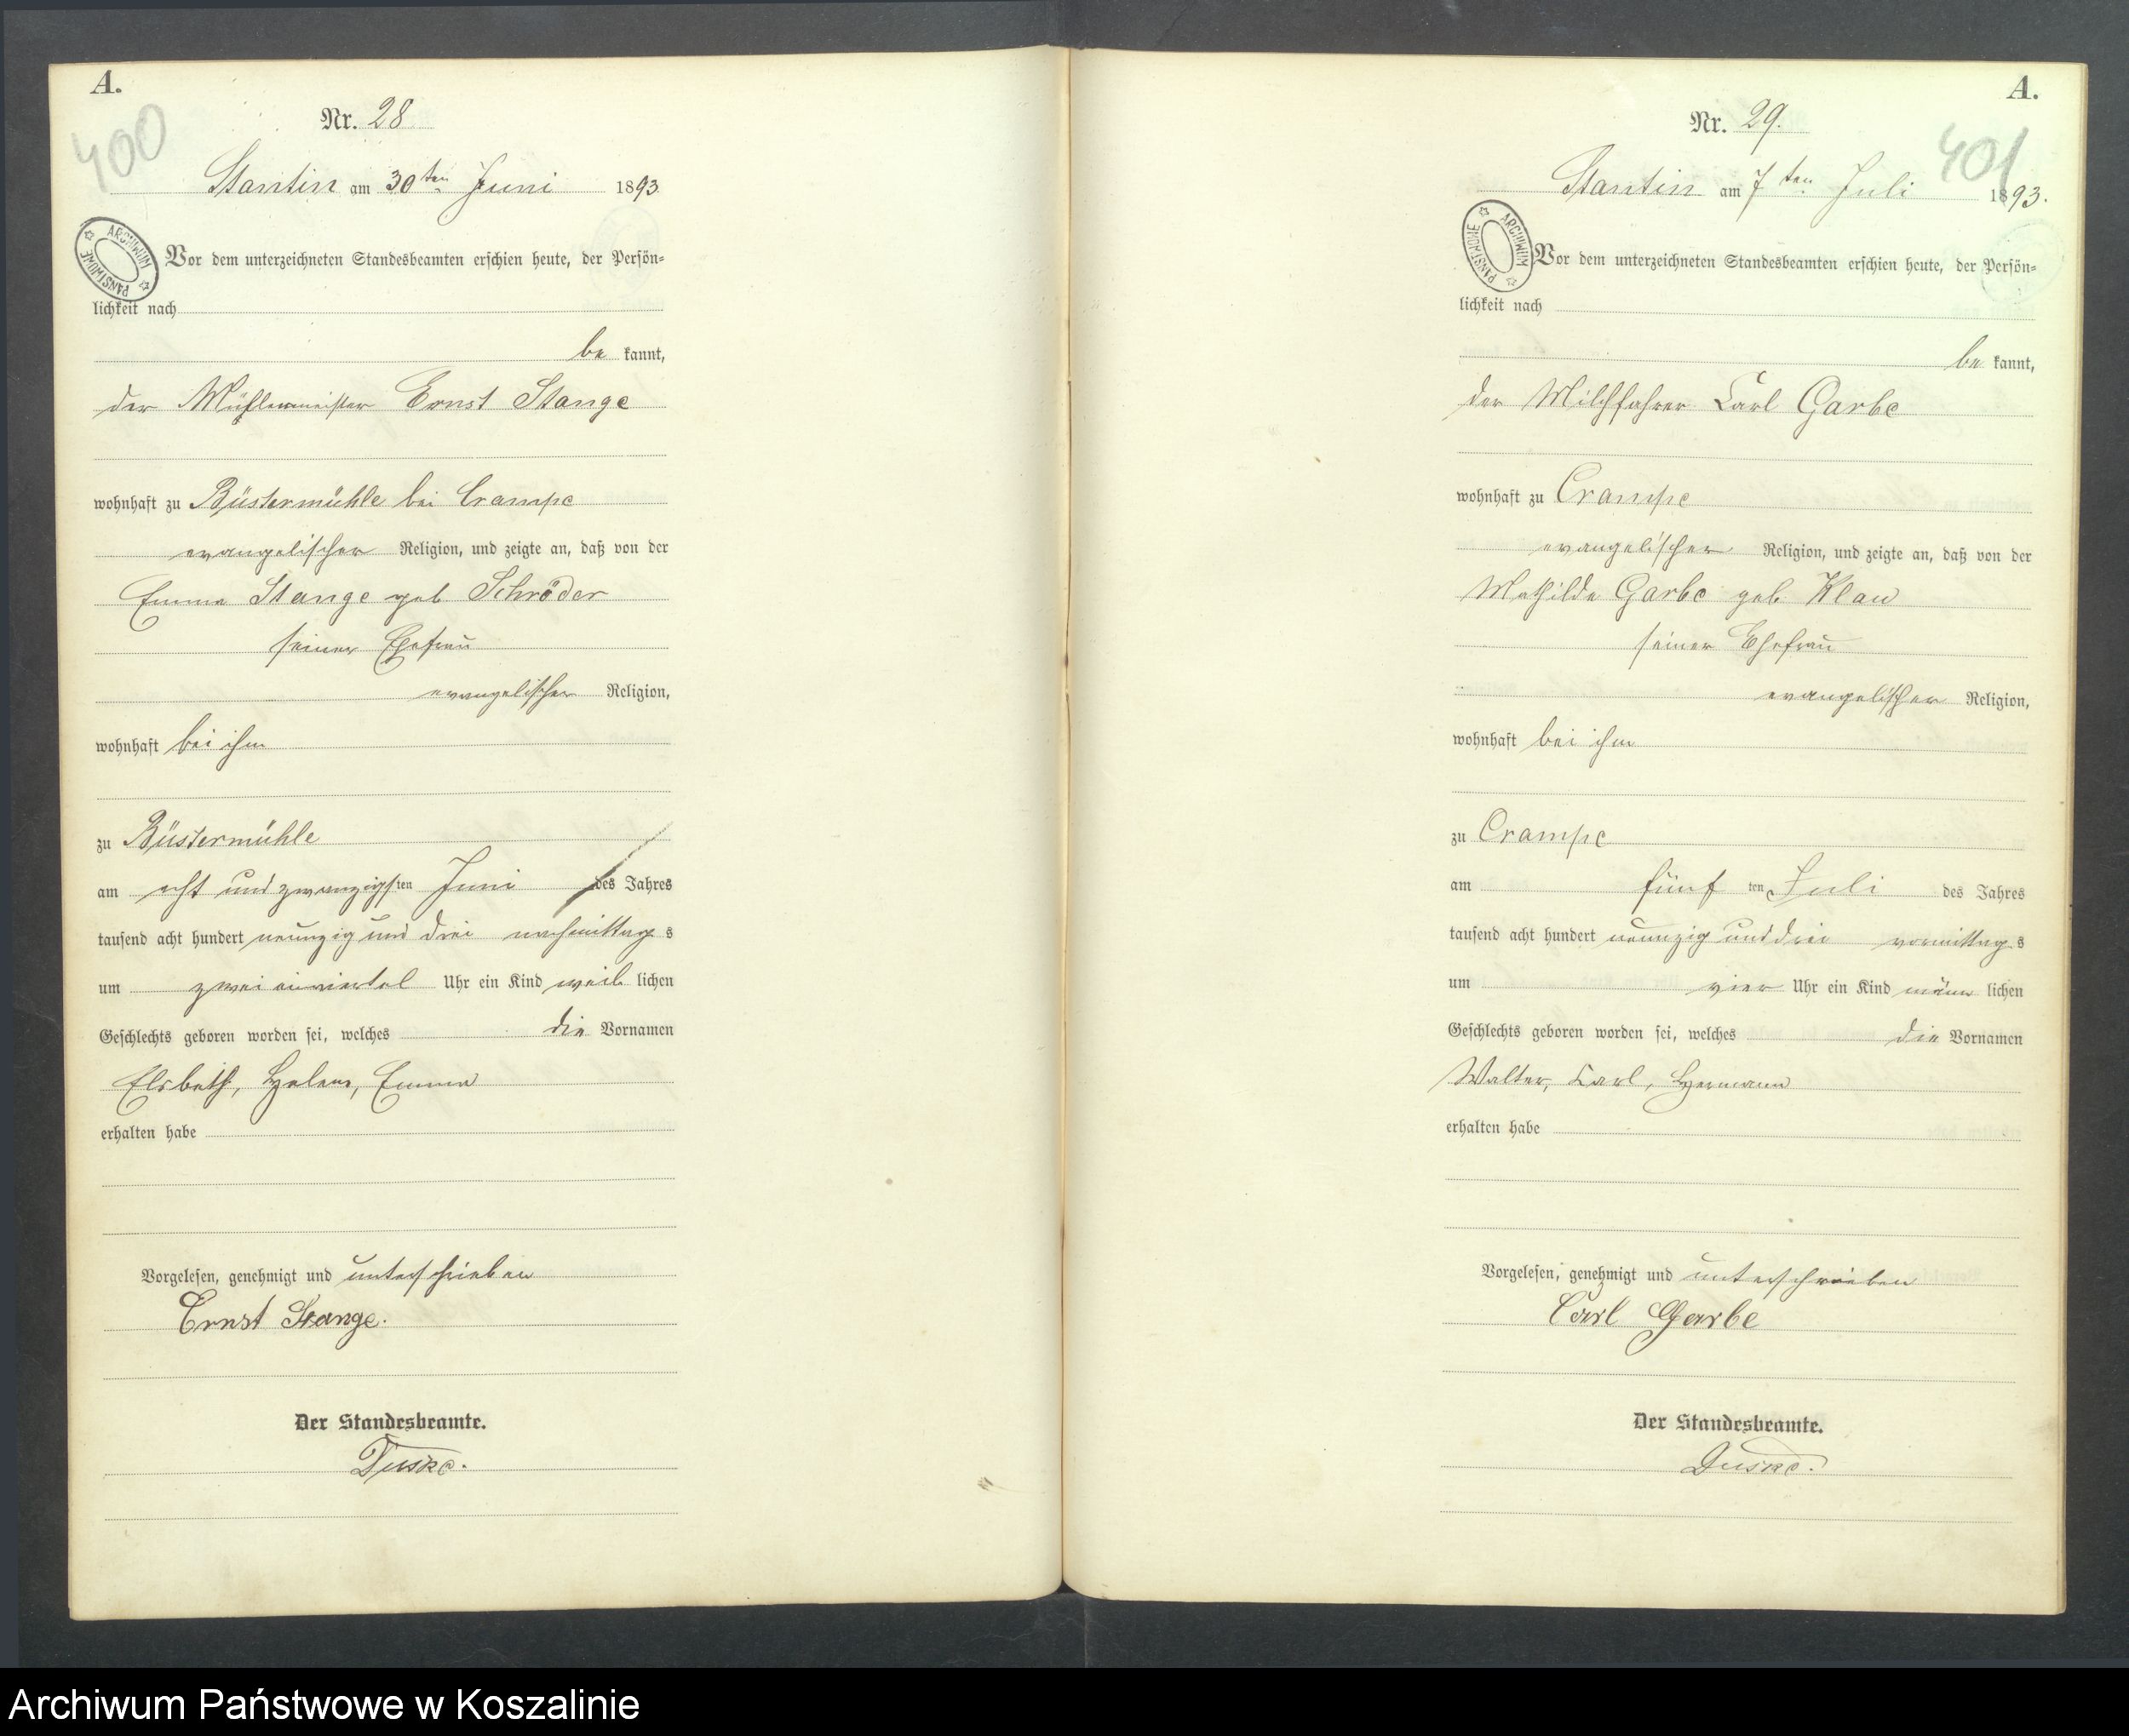 A.
400
Nr. 28
Stantin am 30ten Juni 1893
ARCHIWUM PAŃSTWOWE
Vor dem unterzeichneten Standesbeamten erschien heute, der Persön=
lichkeit nach
be kannt,
der Mühlenmeister Ernst Stange
wohnhaft zu Büstermühle bei Crampe
evangelischer Religion, und zeigte an, daß von der
Emma Stange geb Schröder
seiner Ehefrau
evangelischer Religion,
wohnhaft bei ihm
zu Büstermühle
am acht und zwanzigsten Juni des Jahres
tausend acht hundert neunzig und drei nachmittag s
um zwei einviertel Uhr ein Kind weib lichen
Geschlechts geboren worden sei, welches die Vornamen
Elsbeth, Helene, Emma
erhalten habe
Vorgelesen, genehmigt und unterschrieben
Ernst Stange.
Der Standesbeamte.
A.
401
Nr. 29.
Stantin am 7ten Juli 1893.
ARCHIWUM PAŃSTWOWE
Vor dem unterzeichneten Standesbeamten erschien heute, der Persön=
lichkeit nach
be kannt,
der Milchfahrer Carl Garbe
wohnhaft zu Crampe
evangelischer Religion, und zeigte an, daß von der
Mathilde Garbe geb. Klau
seiner Ehefrau
evangelischer Religion,
wohnhaft bei ihm
zu Crampe
am fünf ten Juli des Jahres
tausend acht hundert neunzig und drei vormittag s
um vier Uhr ein Kind männ lichen
Geschlechts geboren worden sei, welches die Vornamen
Walter, Carl, Hermann
erhalten habe
Vorgelesen, genehmigt und unterschrieben
Carl Garbe
Der Standesbeamte.
Archiwum Państwowe w Koszalinie